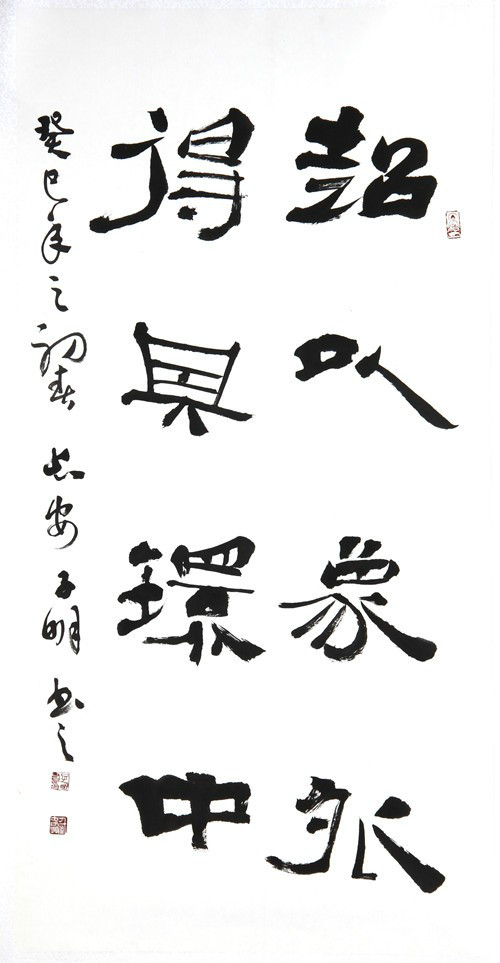 超以象外
得其環中
癸巳年之初春 長安子明書之